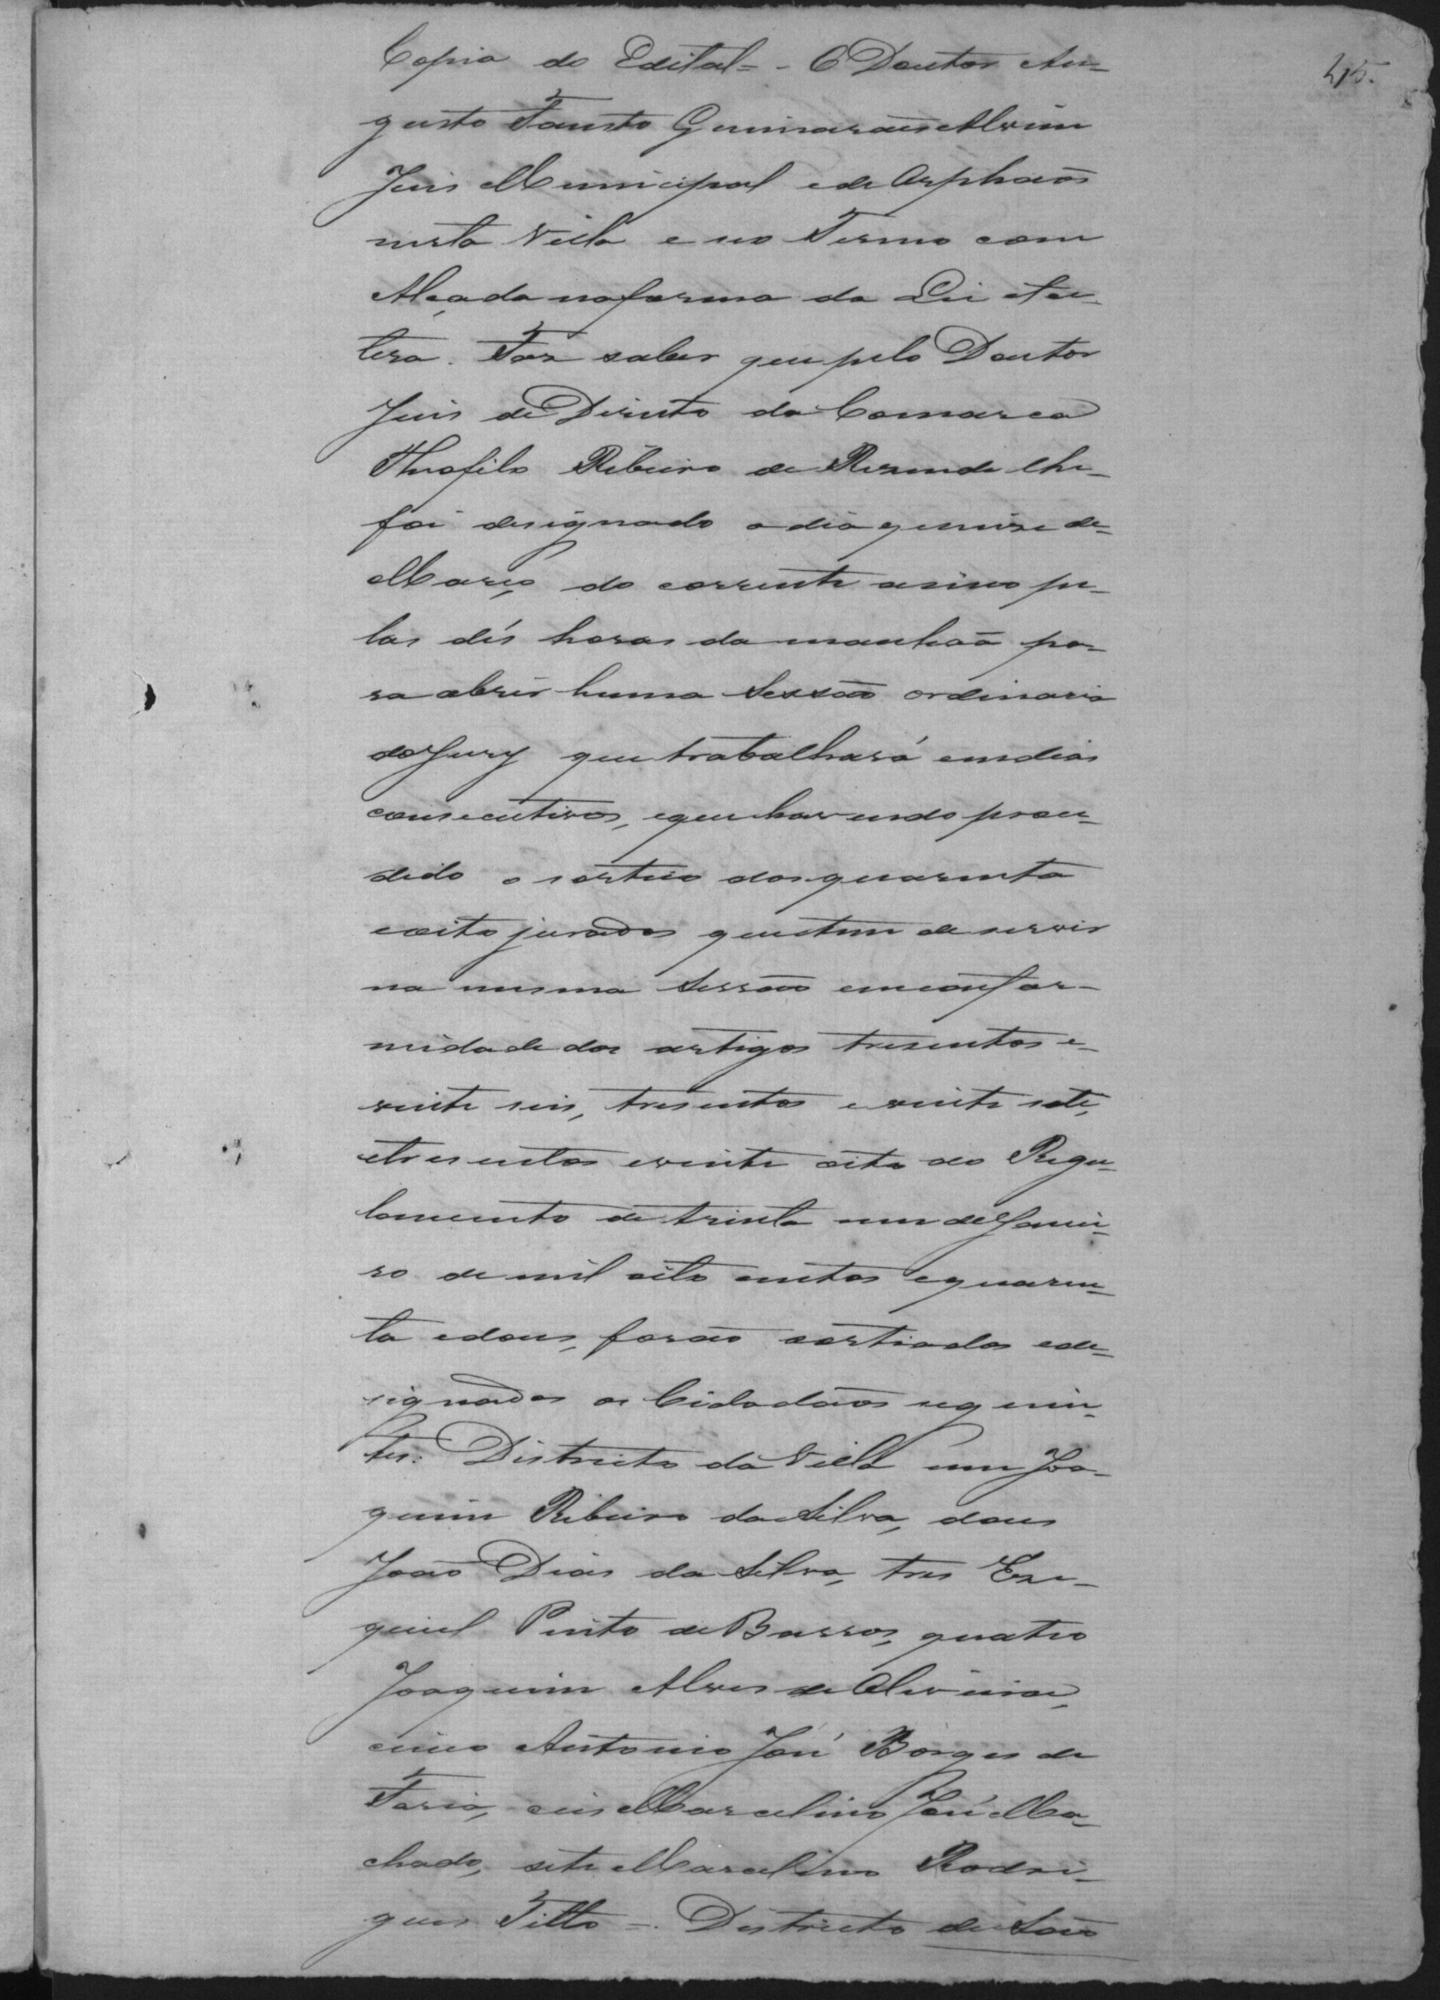 215.
Copia do Edital=. O Doutor Au=
gusto Fausto Guimaraes Alvim
Juis Municipal e de Orphaõs
nesta Villa e no Termo com
Alçada na forma da Lei etce=
tera. Faz saber que pelo Doutor
Juis de Direito da Comarca
Theofilo Ribeiro de Rezende lhe=
foi designado o dia quinze de=
Março, do corrente anno pe=
las dés horas da manhaã pa=
ra abrir huma Sessaõ ordinaria
do Jury que trabalhará em dias
consecutivos, e que havendo proce=
dido o sorteio dos quarenta
e oito jurados que tem de servir
na mesma Sessaõ em confor=
midade dos artigos tresentos e=
vinte seis, tresentos e vinte sete,
e tresentos e vinte oito do Regu=
lamento de trinta um de Janei=
ro de mil oito centos e quaren=
ta e dous, foraõ sortiados e de=
signados os Cidadaõs seguin=
tes: Districto da Villa um Joa=
quim Ribeiro da Silva, dous
Joaõ Dias da Silva, tres Eze=
quiel Pinto de Barros, quatro
Joaquim Alves de Oliveira,
cinco Antonio José Borges de
Faria, seis Marcelino José Ma=
chado, sete Marcelino Rodri=
gues Titto =. Districto de Saõ